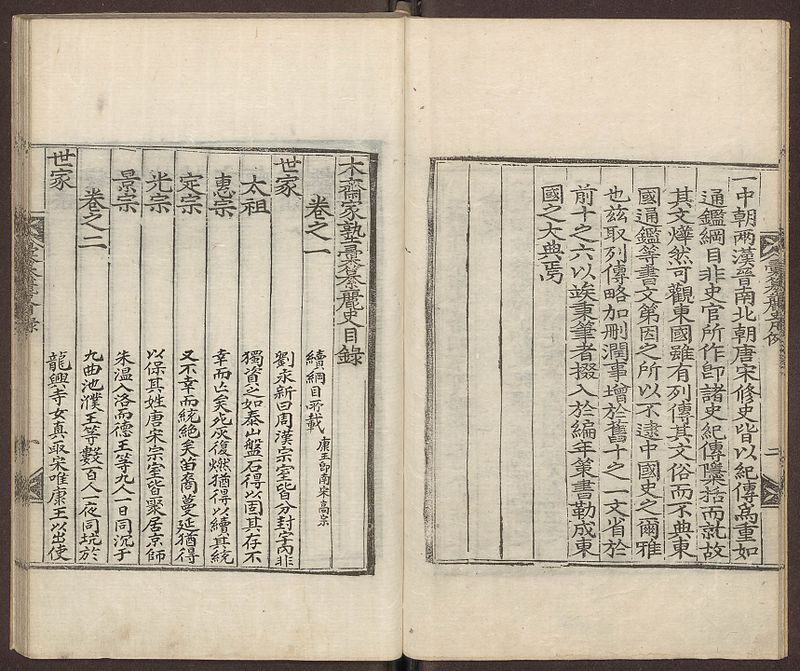 一中朝兩漢晉南北朝唐宋修史皆以紀傳爲重如
通鑑綱目非史官所作卽諸史紀傳檃栝而就故
其文燁然可觀東國雖有列傳其文俗而不典東
國通鑑等書文第因之所以不逮中國史之爾雅
也玆取列傳略加刪潤事增於舊十之一文省於
前十之六以竢秉筆者掇入於編年策書勒成東
國之大典焉
二
木齋家塾彙纂麗史目錄
卷之一
續綱目所載 康王卽南宋高宗
世家
劉永新曰周漢宗室皆分封宇內非
太祖
獨資之如泰山盤石得以固其存不
惠宗
幸而亡矣死灰復燃猶得以續其統
定宗
又不幸而統絶矣苗裔蔓延猶得
光宗
以保其姓唐宋宗室皆聚居京師
景宗
朱温入洛而德王等九人一日同沉于
卷之二
九曲池濮王等數百人一夜同坑於
世家
龍興寺女真取宋唯康王以出使